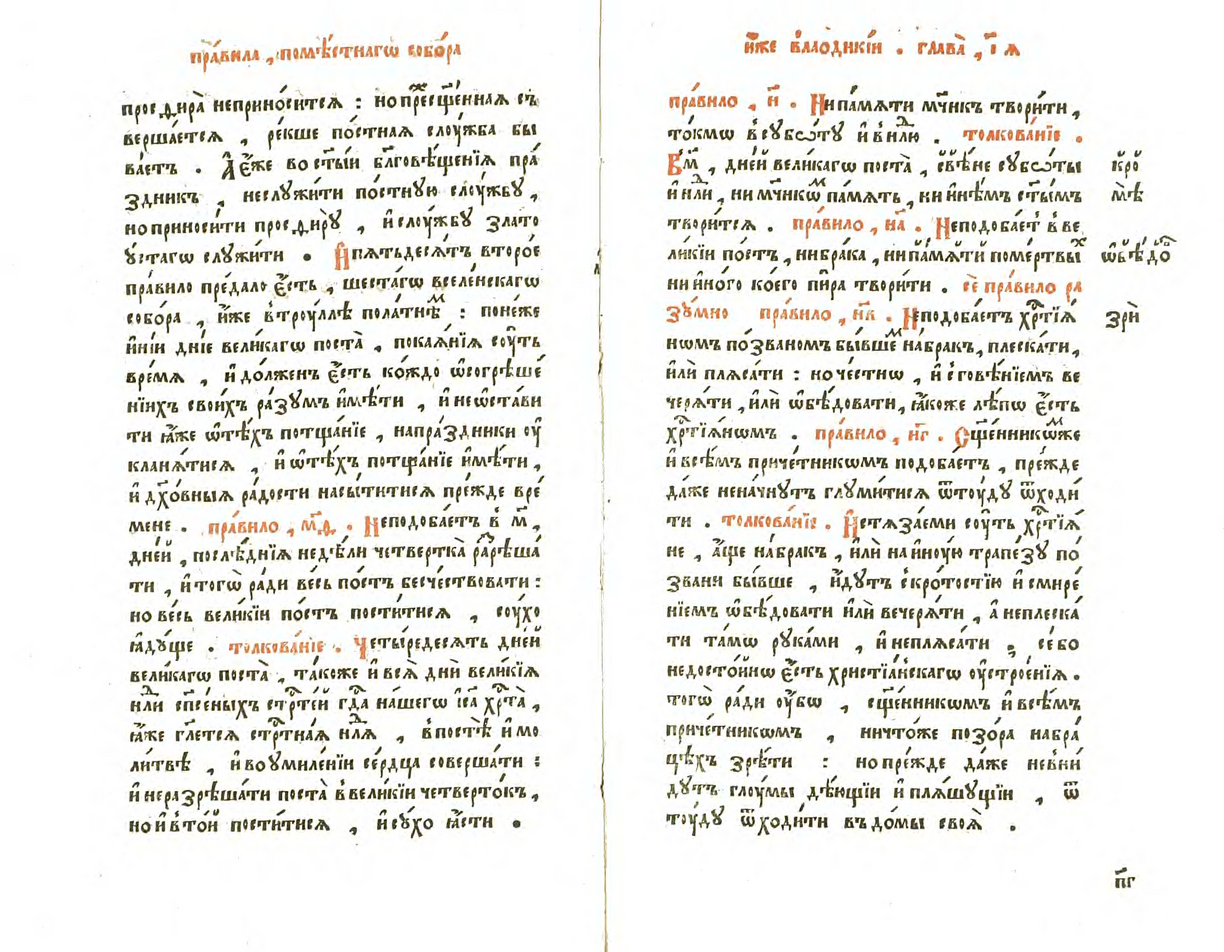 пра́вила , помѣ́стнагѡ собо́ра
просѳира̀ неприно́сится : но пре́сщ҃е́нная съ
верша́ется , ре́кше по́стная слоу́жба бы
ва́етъ . А҆є҆́же во ст҃ы́и бл҃говѣ́щенїя пра́
здникъ , неслꙋжи́ти по́стнꙋю слоу́жбꙋ ,
но приноси́ти просѳи́рꙋ , и҆ слоу́жбꙋ злато
ꙋ́стагѡ слꙋжи́ти . И҆ пятьдеся́тъ второ́е
пра́вило преда́ло є҆́сть , шеста́гѡ вселе́нскагѡ
собо́ра , и҆́же в̾ троу́ллѣ пола́тнѣмъ : поне́же
и҆ні́и дні́е вели́кагѡ поста̀ , покая́нїя соу́ть
вре́мя , и҆ до́лженъ є҆́сть ко́ждо ѡ҆ согрѣше́
нїихъ свои́хъ ра́зꙋмъ и҆мѣ́ти , и҆ не ѡ҆ста́ви
ти ꙗ҆́же ѡ҆ тѣ́хъ потща́нїе , на пра́здники оу҆
кланя́тися , и҆ ѡ҆ тѣ́хъ потща́нїе и҆мѣ́ти ,
и҆ дх҃о́вныя ра́дости насы́титися пре́жде вре́
мене . пра́вило , м҃ѳ . Неподоба́етъ в̾ м҃ ,
дне́й , послѣ́днїя недѣ́ли четвертка̀ разрѣша́
ти , и҆ тогѡ̀ ради ве́сь по́стъ бесче́ствовати :
но ве́сь вели́кїи по́стъ пости́тися , соу́хо
ꙗ҆дꙋ́ще . толкова́нїе . Четы́редесять дне́й
вели́кагѡ поста̀ , та́коже и҆ вся̀ днѝ вели́кїя
нд҃ли сп҃се́ныхъ стр҃те́й гд҇а на́шегѡ і҆с҃а хр҇та̀ ,
ꙗ҆́же гл҃ется стр҇тна́я нд҃ля , в̾ постѣ̀ и҆ мо
ли́твѣ , и҆ во ꙋ҆миле́нїи се́рдца соверша́ти :
и҆ неразрѣша́ти поста̀ в̾ вели́кїи четверто́къ ,
но и҆ в̾ то́й пости́тися , и҆ сꙋ́хо ꙗ҆́сти .
и҆́же в̾ лаоди́кїи . глава̀ , а҃і
пра́вило , н҃ . Ни па́мяти мч҃никъ твори́ти ,
то́кмѡ в̾ сꙋббѡ́тꙋ и҆ в̾ нд҃лю . толкова́нїе .
В̾ м҃ , дне́й вели́кагѡ поста̀ , свѣ́не сꙋббѡ́ты кро
и҆ нд҃ли , ни мч҃никѡмъ па́мять , ни и҆нѣ́мъ ст҃ы́мъ мѣ
твори́тся . пра́вило , н҃а . Неподоба́етъ в̾ ве
ли́кїи по́стъ , ни бра́ка , ни па́мяти поме́ртвыхъ ѡ҆бѣ́до
ни и҆но́го ко́его пи́ра твори́ти . се́ пра́вило ра
зꙋ́мно пра́вило , н҃в . Неподоба́етъ хр҇тїя зрѝ
нѡмъ по́званомъ бы́вшемъ на́ бракъ , плеска́ти ,
и҆лѝ пляса́ти : но че́стнѡ , и҆ с̾ говѣ́нїемъ ве
черя́ти , и҆лѝ ѡ҆бѣ́довати , ꙗ҆́коже лѣ́пѡ є҆́сть
хр҇тїя́нѡмъ . пра́вило , н҃г . Сщ҃е́нникѡмже
и҆ всѣ́мъ приче́тникѡмъ подоба́етъ , пре́жде
да́же не нач́нꙋтъ глꙋми́тися ѿтоу́дꙋ ѿходи́
ти . толкова́нїе . И҆стяза́еми соу́ть хр҇тїя́
не , а҆́ще на́ бракъ , и҆лѝ на и҆ноу́ю трапе́зꙋ по́
звани бы́вше , и҆́дꙋтъ с̾ кро́тостїю и҆ смире́
нїемъ ѡ҆бѣ́довати и҆лѝ вечеря́ти , а҆ не плеска́
ти та́мѡ рꙋка́ми , и҆ не пляса́ти , се́ бо
недосто́йнѡ є҆́сть христїа́нскагѡ оу҆строе́нїя .
тогѡ̀ ради оу҆́бѡ , сщ҃е́нникѡмъ и҆ всѣ́мъ
приче́тникѡмъ , ничто́же позо́ра на бра́
цѣхъ зрѣ́ти : но пре́жде да́же не вни́
дꙋтъ глоу́мы дѣ́ющїи и҆ пля́шꙋщїи , ѿ
тоу́дꙋ ѿходи́ти въ до́мы своя̀ .
п҃г